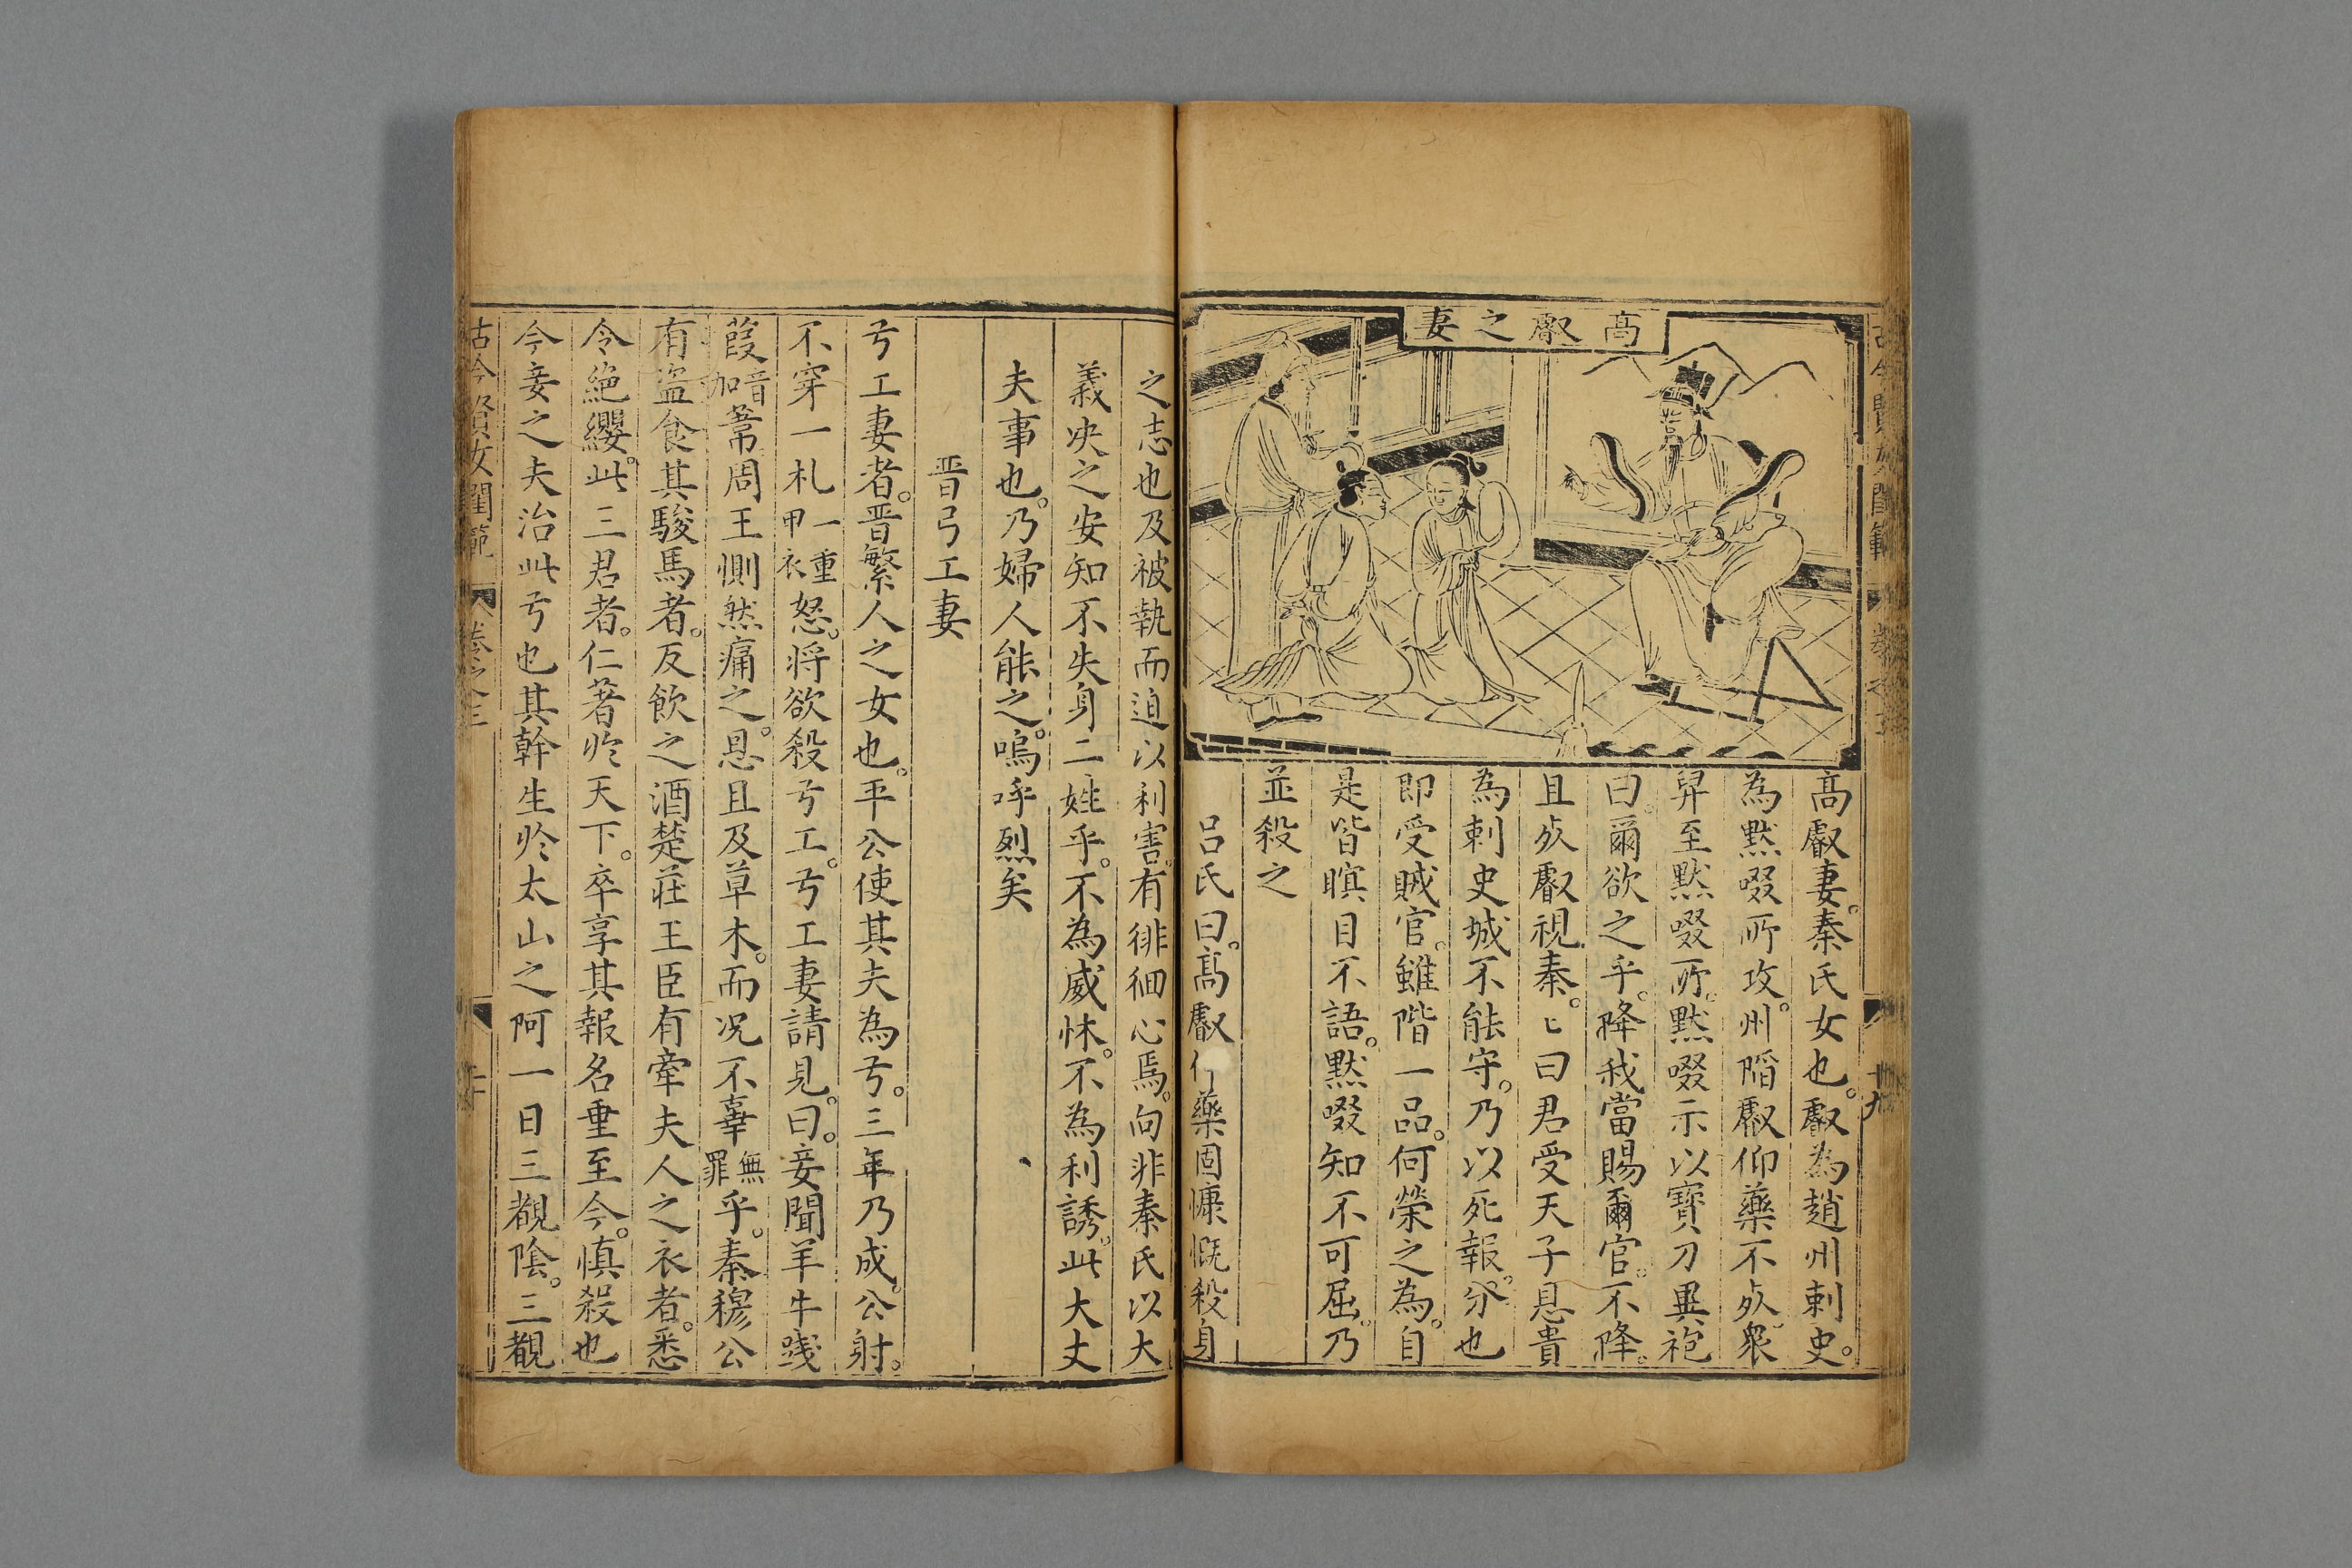 古今賢女閨範 卷之三 十九
高叡之妻
高叡妻。秦氏女也。叡為趙州刺史。
為黙啜所攻。州䧟叡仰藥不𣦸。衆
舁至黙啜所。黙啜示以寶刀異袍
曰。爾欲之乎。降我當賜爾官。不降。
且𣦸叡視秦。〻曰君受天子恩貴
為刺史城不能守。乃以死報。分也
即受賊官。雖階一品。何榮之為。自
是皆瞑目不語。黙啜知不可屈。乃
並殺之
呂氏曰。高叡仰藥固慷慨殺身
之志也及被執而迫以利害。有徘徊心焉。向非秦氏以大
義决之安知不失身二姓乎。不為威怵。不為利誘。此大丈
夫事也。乃婦人能之。嗚呼烈矣
晋弓工妻
弓工妻者。晋繁人之女也。平公使其夫為弓。三年乃成。公射。
不穿一札一重甲衣怒。将欲殺弓工。弓工妻請見。曰。妾聞羊牛踐
葭音加葦周王惻然痛之。恩且及草木。而况不辜無罪乎。秦穆公
有盜食其駿馬者。反飲之酒楚莊王臣有牽夫人之衣者。悉
令絶纓。此三君者。仁著於天下。卒享其報名垂至今。慎殺也
今妾之夫治此弓也其幹生於太山之阿一日三覩陰。三覩
古今賢女閨範 卷之三 二十